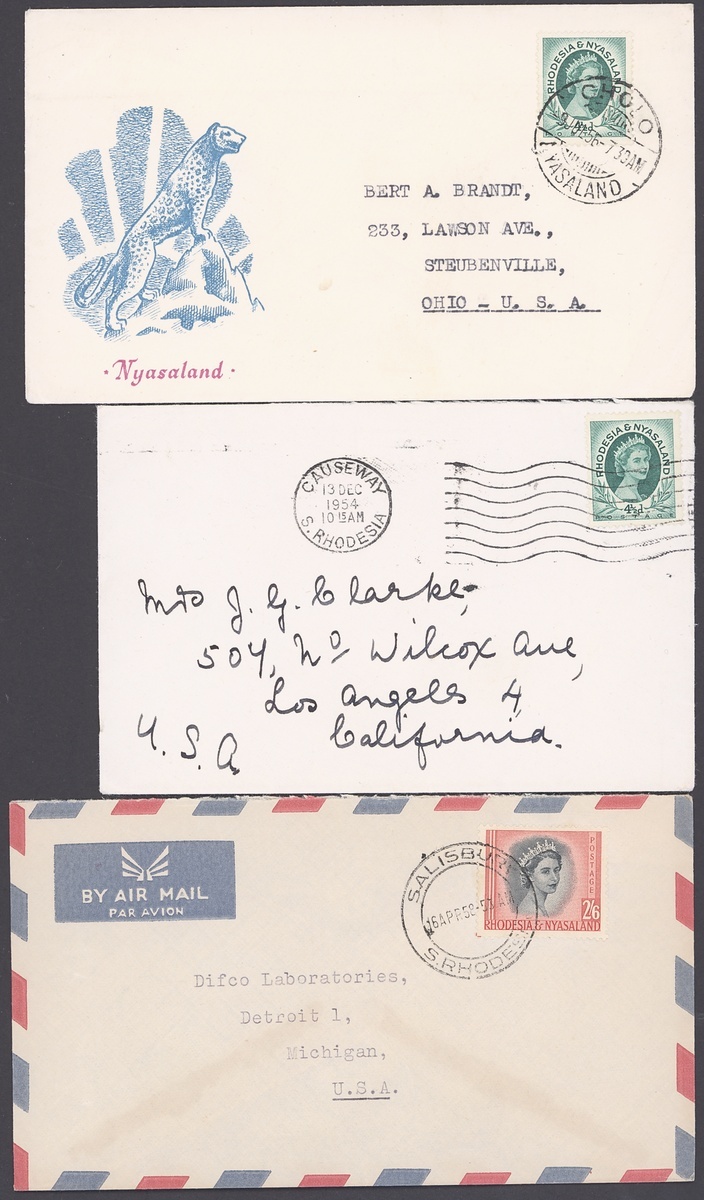 RHODESIA & NYASALAND
4½d
CHOLO
7 30AM
NYASALAND
BERT A. BRANDT,
233, LAWSON AVE.,
STEUBENVILLE,
OHIO - U. S. A.
· Nyasaland ·
RHODESIA & NYASALAND
4½d
POSTAGE
CAUSEWAY
13 DEC
1954
10 15 AM
S. RHODESIA
Mrs J. G. Clarke,
504, No Wilcox Ave,
Los Angeles 4
California.
U. S. A.
BY AIR MAIL
PAR AVION
SALISBURY
16 APR 58
S. RHODESIA
POSTAGE
2/6
RHODESIA & NYASALAND
Difco Laboratories,
Detroit 1,
Michigan,
U.S.A.